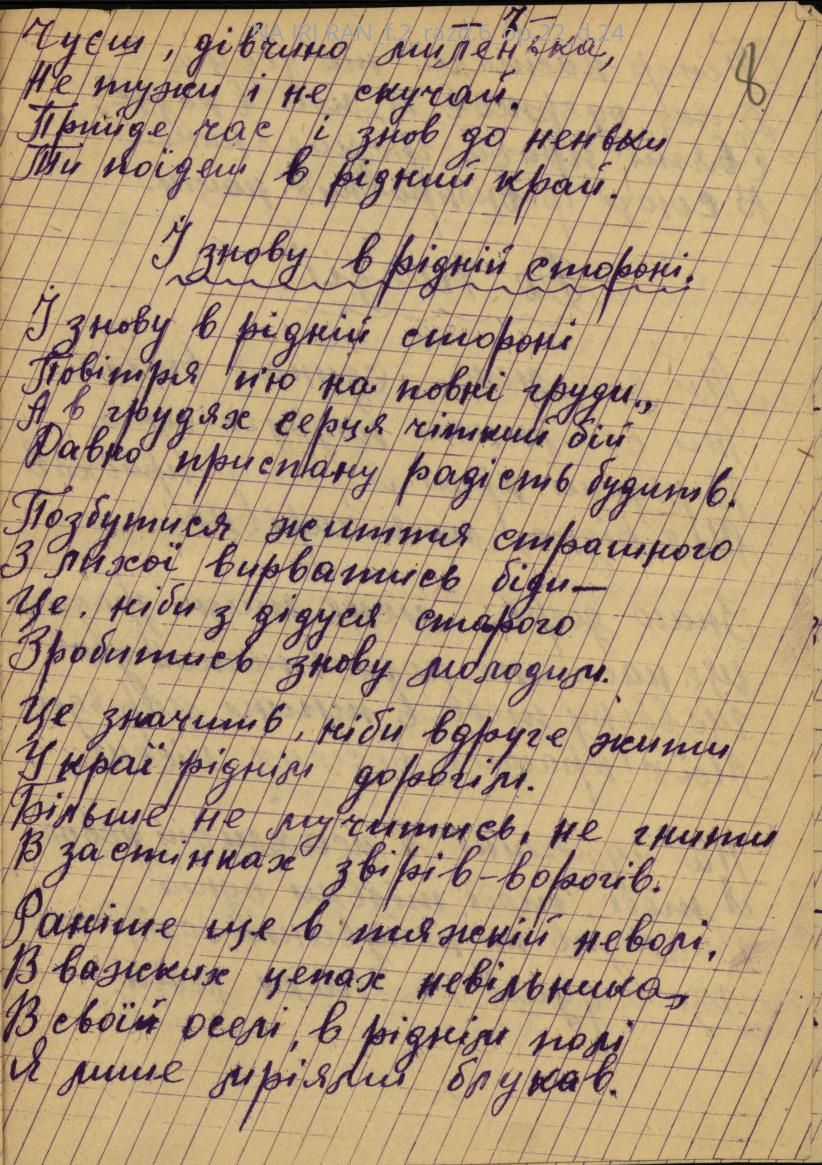 NA IRI RAN f.2 razd.6 op.22 d.24
8
Чуєш, дівчино миленька,
Не тужи і не скучай.
Прийде час і знов до неньки
Ти поїдеш в рідний край.
І знову в рідній стороні.
І знову в рідній стороні
Повітря п'ю на повні груди,
А в грудях серця чіткий бій
Давно приспану радість будить.
Позбутися життя страшного
З лихої вирватись біди—
Це, ніби з дідуся старого
Зробитись знову молодим.
Це значить, ніби вдруге жити
У краї ріднім дорогім.
Більше не мучитись, не гнити
В застінках звірів-ворогів.
Раніше ще в тяжкій неволі,
В важких цепах невільника,
В своїй оселі, в ріднім полі
Я лише мріями блукав.